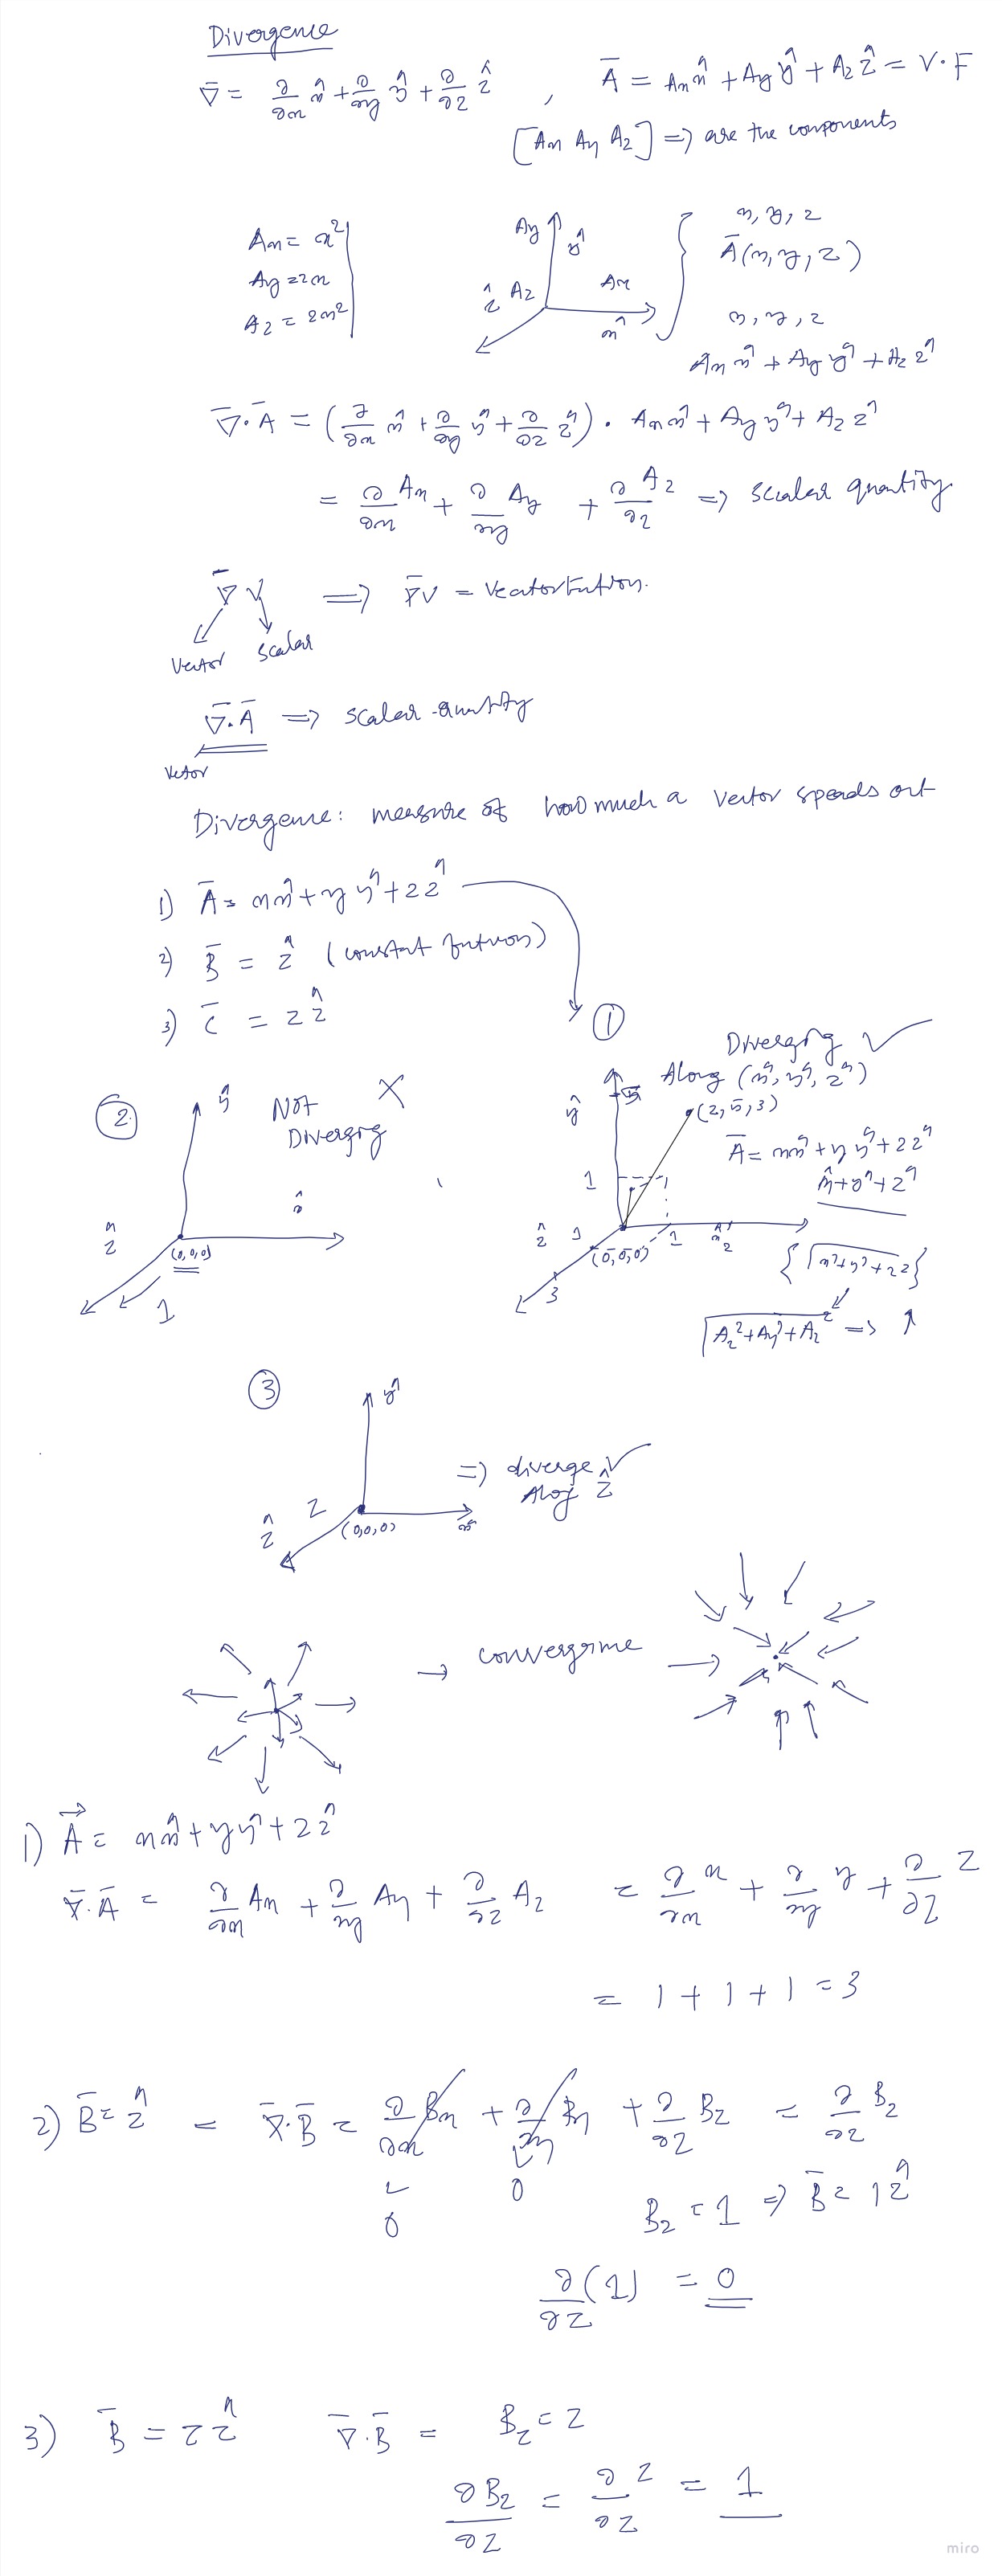 Divergence
∇̄ = ∂/∂x x̂ + ∂/∂y ŷ + ∂/∂z ẑ , Ā = Ax x̂ + Ay ŷ + Az ẑ = V·F
[Ax Ay Az] => are the components
Ax = x²
Ay = 2x
Az = 2x²
Ay ŷ
ẑ Az Ax
x̂
x, y, z
Ā(x, y, z)
x, y, z
Ax x̂ + Ay ŷ + Az ẑ
∇̄·Ā = (∂/∂x x̂ + ∂/∂y ŷ + ∂/∂z ẑ) · Ax x̂ + Ay ŷ + Az ẑ
= ∂/∂x Ax + ∂/∂y Ay + ∂/∂z Az => scalar quantity
∇̄ V => ∇̄V = Vector Fution.
Vector scalar
∇̄·Ā => scalar quantity
Vector
Divergence: measure of how much a vector speads out
1) Ā = x x̂ + y ŷ + z ẑ
2) B̄ = ẑ (constant funtion)
3) C̄ = z ẑ
1
Diverging ✓
Along (x̂, ŷ, ẑ)
(2, 5, 3)
Ā = x x̂ + y ŷ + z ẑ
x̂ + ŷ + ẑ
ŷ 5
1
ẑ 1 (0,0,0) 1 x̂ 2
3
{√x²+y²+z²}
√Az²+Ay²+Az² => ↑
2. ŷ NOT X
Diverging
x̂
ẑ
(0,0,0)
1
3 ŷ
=> diverge ✓
Along ẑ
z
ẑ (0,0,0) x̂
→ convergrme
1) A⃗ = x x̂ + y ŷ + z ẑ
∇̄·Ā = ∂/∂x Ax + ∂/∂y Ay + ∂/∂z Az = ∂/∂x x + ∂/∂y y + ∂/∂z z
= 1 + 1 + 1 = 3
2) B̄ = ẑ = ∇̄·B̄ = ∂/∂x Bx + ∂/∂y By + ∂/∂z Bz = ∂/∂z Bz
0 0
Bz = 1 => B̄ = 1 ẑ
∂/∂z (1) = 0
3) B̄ = z ẑ ∇̄·B̄ = Bz = z
∂Bz/∂z = ∂/∂z z = 1
miro